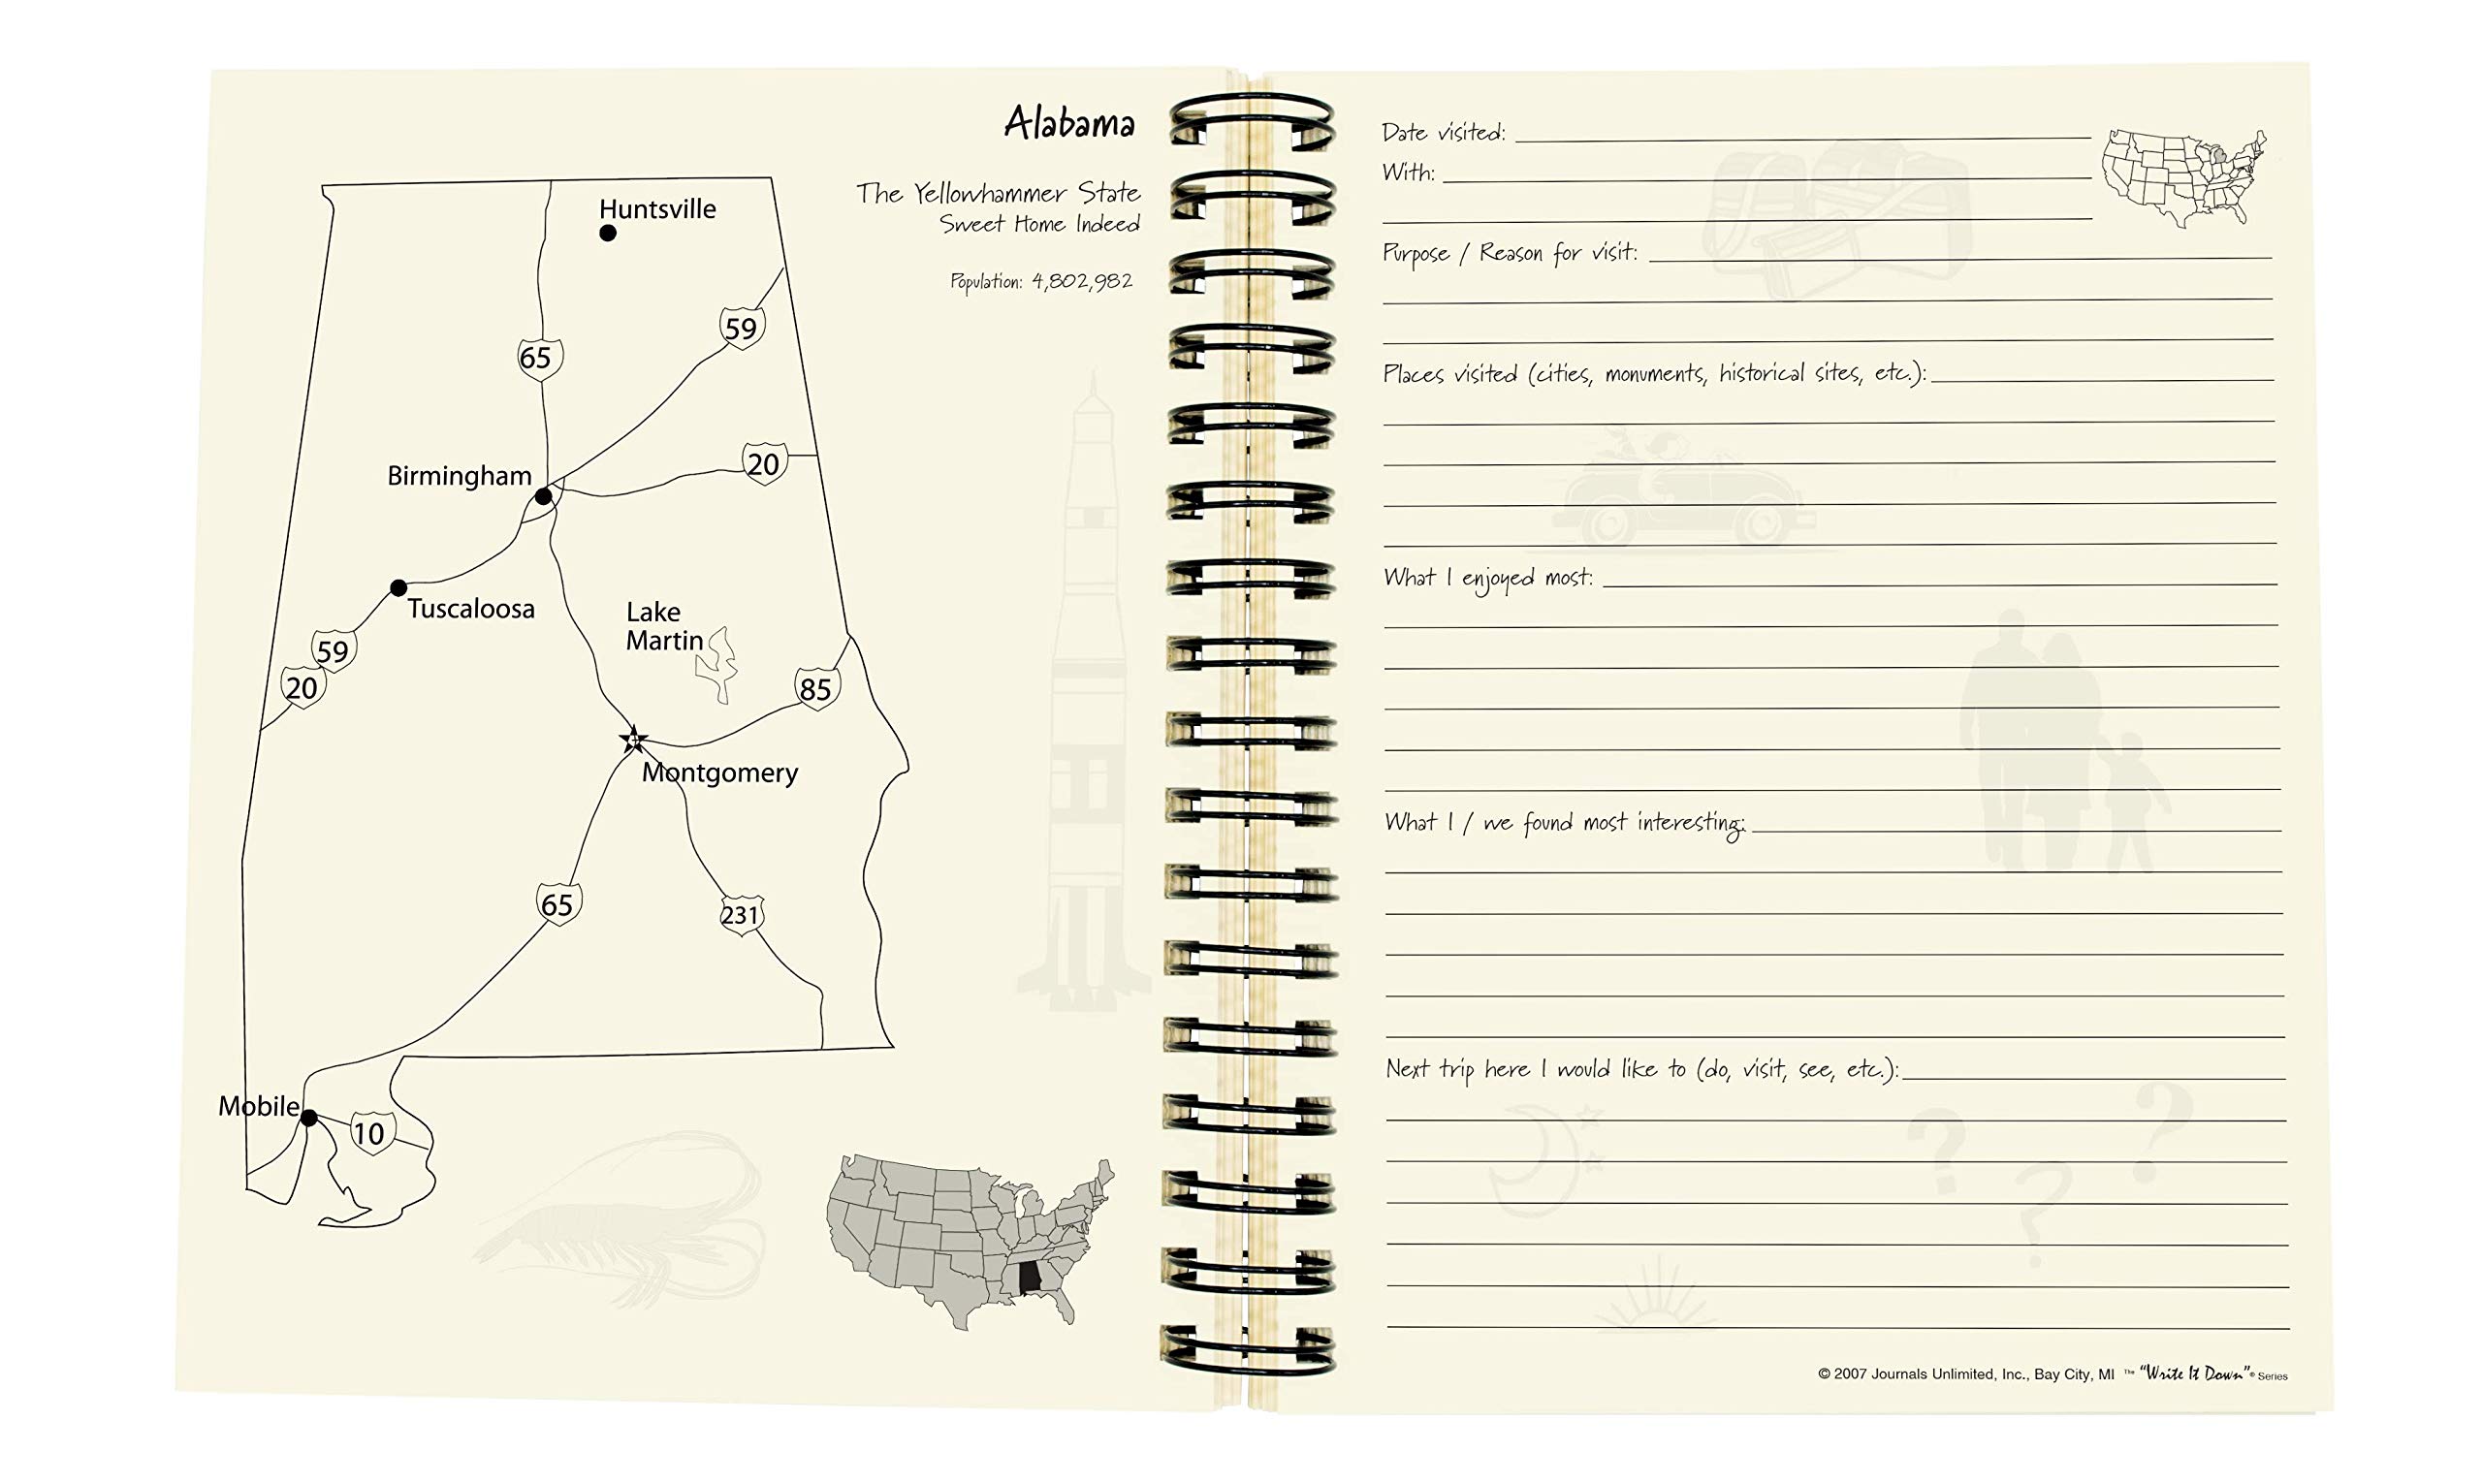 Alabama
The Yellowhammer State
Sweet Home Indeed
Population: 4,802,982
Huntsville
59
65
20
Birmingham
Tuscaloosa
Lake
Martin
59
20
85
Montgomery
65
231
Mobile
10
Date visited:
With:
Purpose / Reason for visit:
Places visited (cities, monuments, historical sites, etc.):
What I enjoyed most:
What I / we found most interesting:
Next trip here I would like to (do, visit, see, etc.):
? ? ?
© 2007 Journals Unlimited, Inc., Bay City, MI ™ "Write It Down"® Series